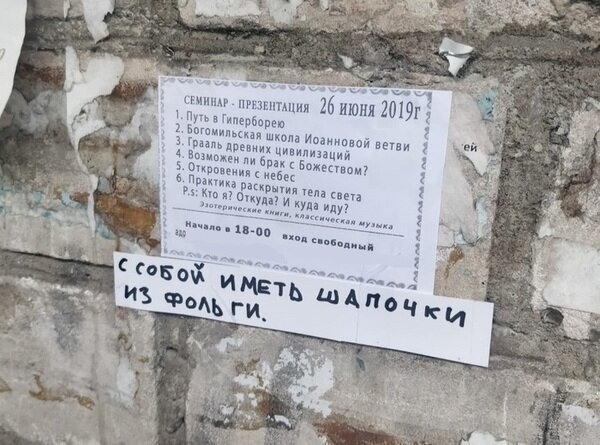 СЕМИНАР - ПРЕЗЕНТАЦИЯ 26 ИЮНЯ 2019г
1. Путь в Гиперборею
2. Богомильская школа Иоанновой ветви
3. Грааль древних цивилизаций
4. Возможен ли брак с Божеством?
5. Откровения с небес
6. Практика раскрытия тела света
P.s: Кто я? Откуда? И куда иду?
Эзотерические книги, классическая музыка
Начало в 18-00 вход свободный
ей
С СОБОЙ ИМЕТЬ ШАПОЧКИ
ИЗ ФОЛЬГИ.